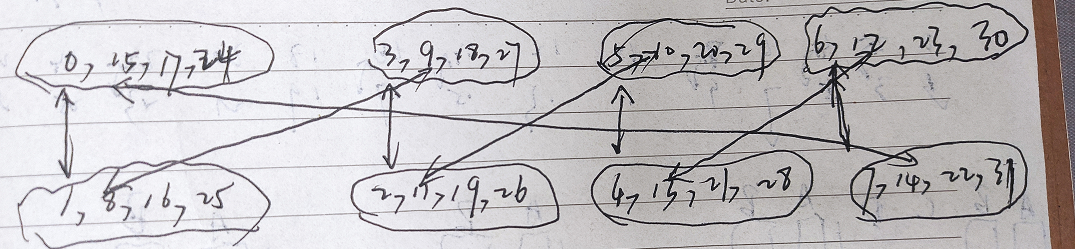 0, 15, 17, 24 3, 9, 18, 27 5, 10, 20, 29 6, 12, 23, 30
1, 8, 16, 25 2, 11, 19, 26 4, 13, 21, 28 7, 14, 22, 31